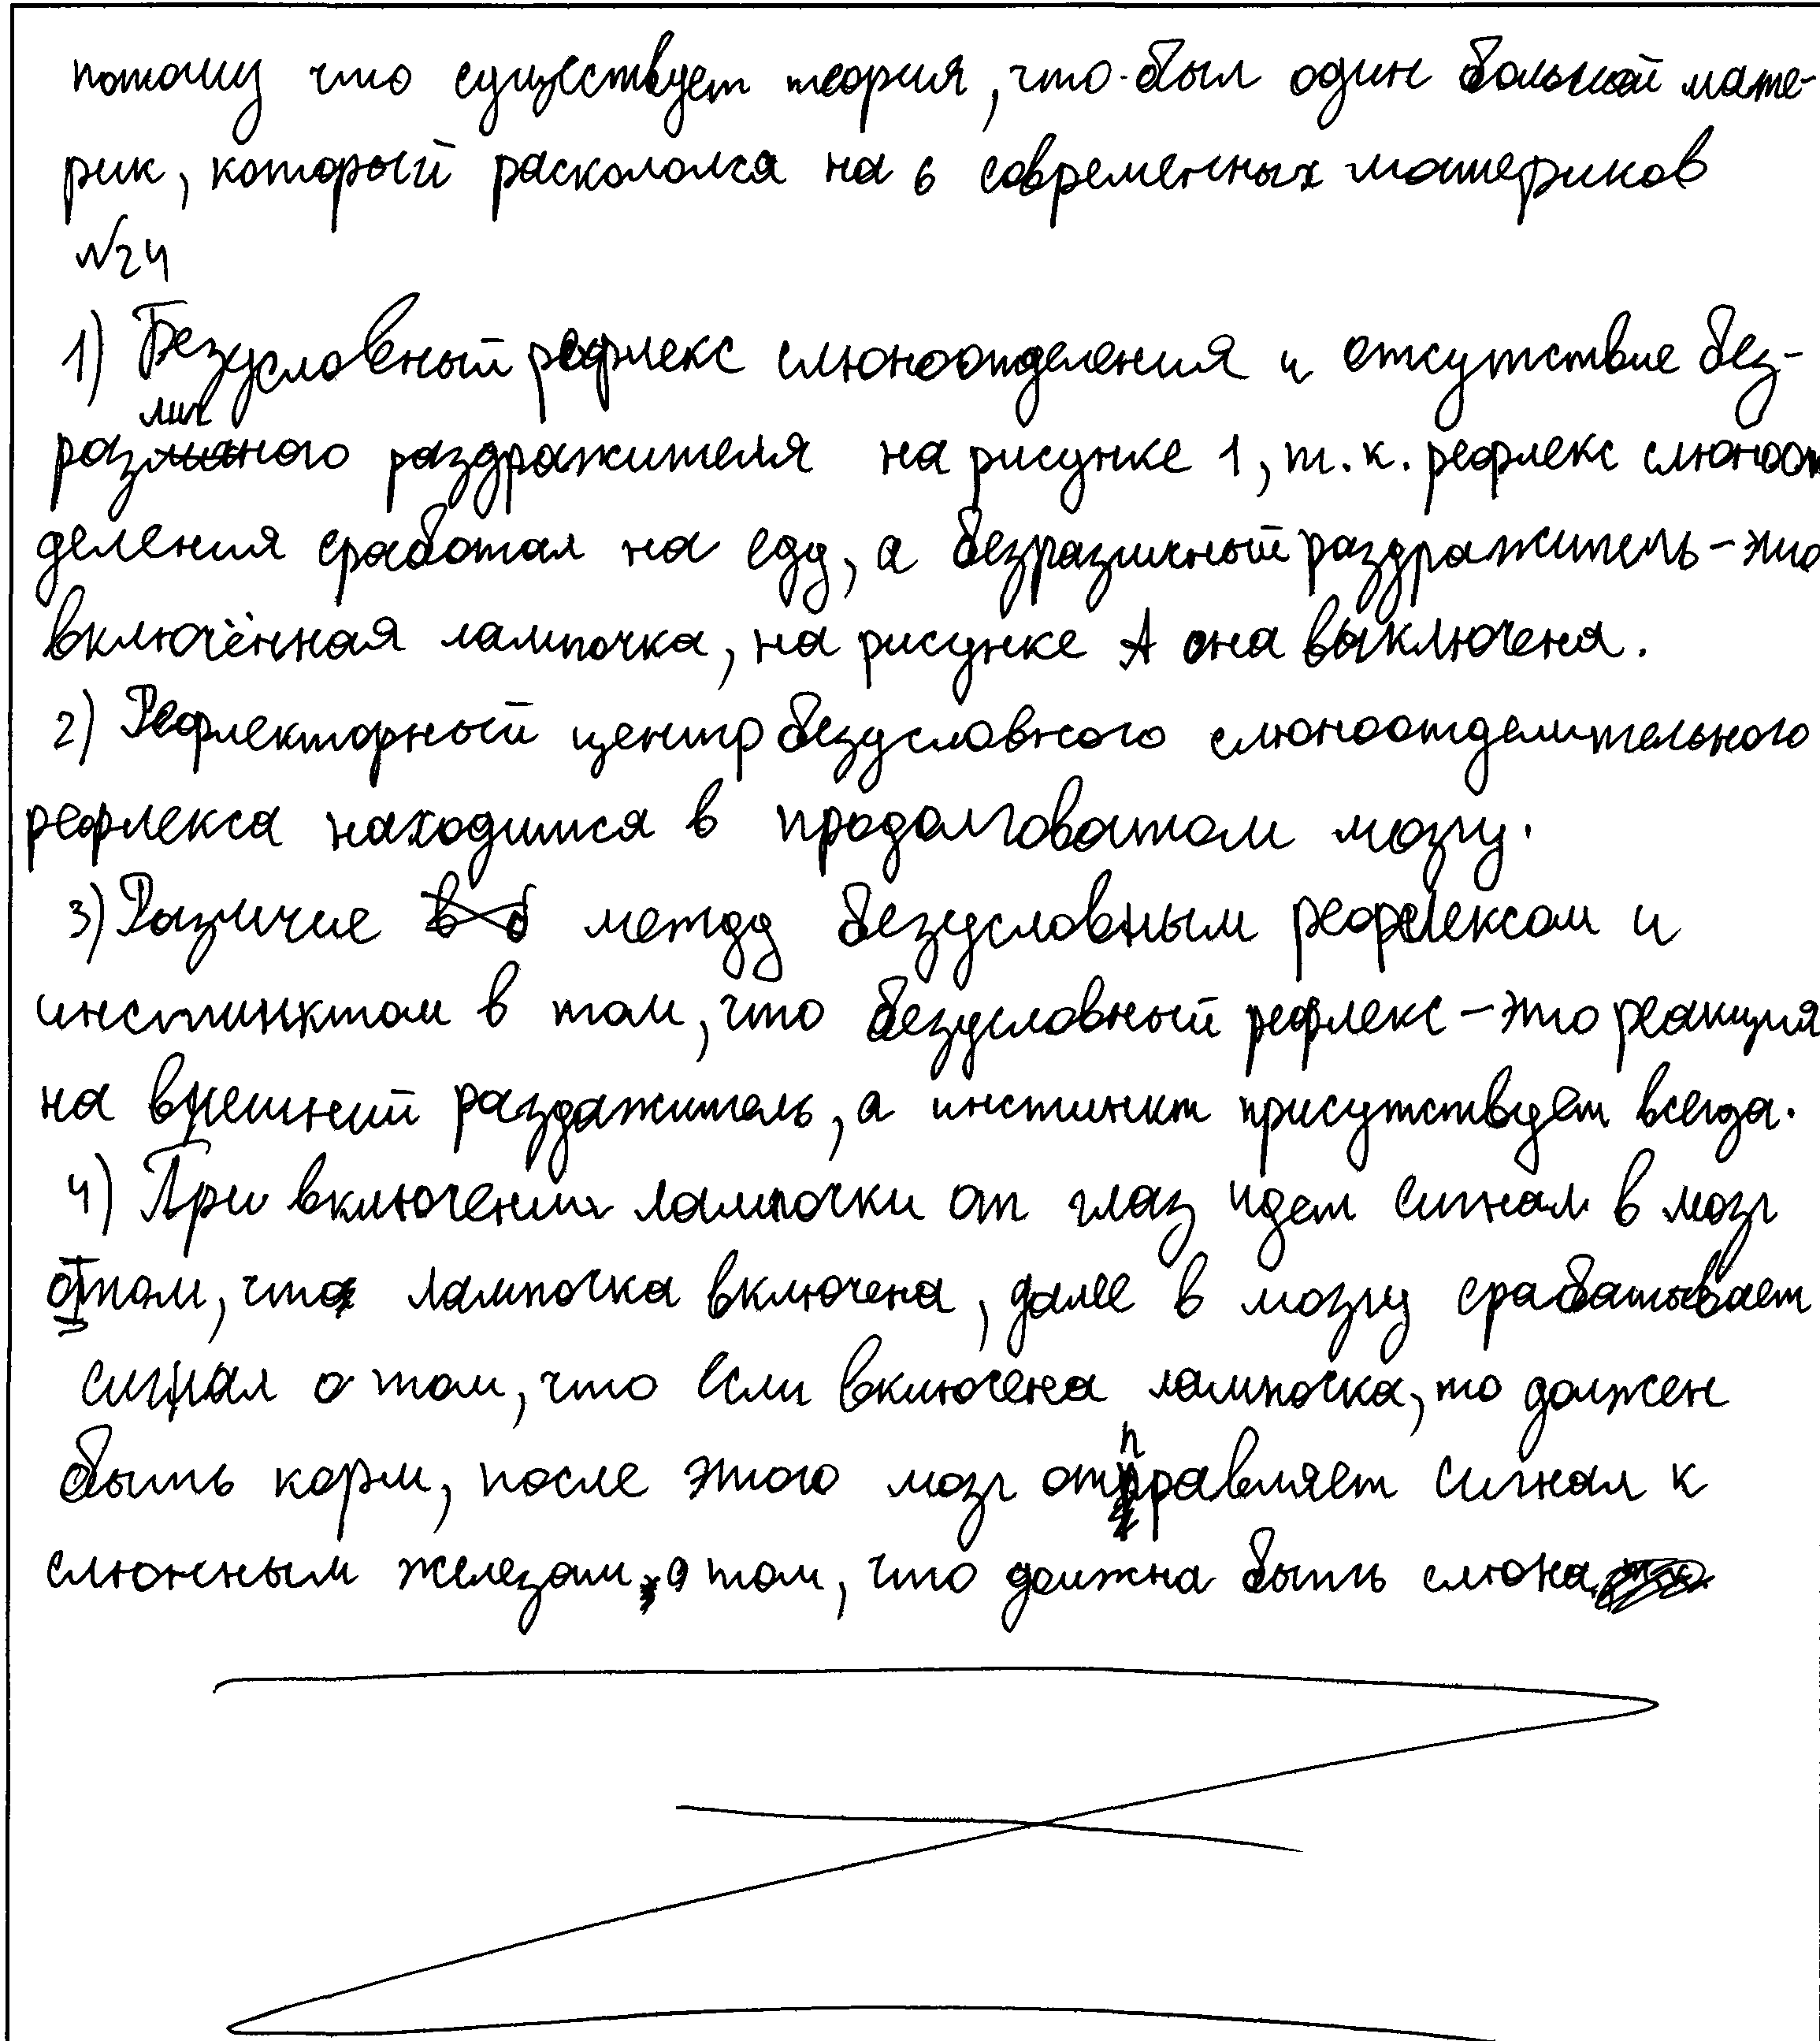 потому что существует теория, что был один большой мате-
рик, который раскололся на 6 современных материков
№24
1) Безусловный рефлекс слюноотделения и отсутствие без-
различного раздражителя на рисунке 1, т.к. рефлекс слюноот
деления сработал на еду, а безразличный раздражитель - это
включённая лампочка, на рисунке А она выключена.
2) Рефлекторный центр безусловного слюноотделительного
рефлекса находится в продолговатом мозгу.
3) Различие между безусловным рефлексом и
инстинктом в том, что безусловный рефлекс - это реакция
на внешний раздажитель, а инстинкт присутствует всегда.
4) При включении лампочки от глаз идет сигнал в мозг
о том, что лампочка включена, далее в мозгу срабатывает
сигнал о том, что если включена лампочка, то должен
быть корм, после этого мозг отправляет сигнал к
слюнным железам о том, что должна быть слюна.